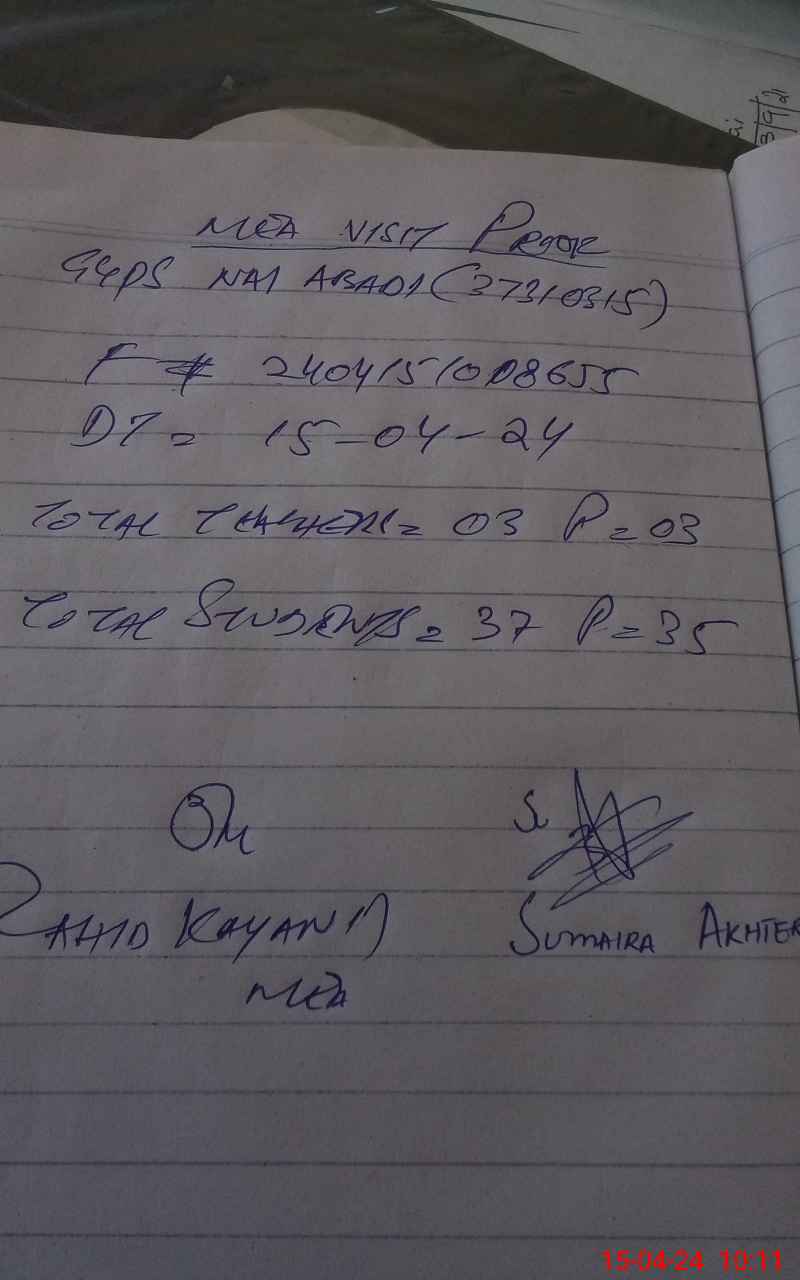 MEA VISIT PROOF
GGPS NAI ABADI (37310315)
F # 2404151008655
DT = 15-04-24
TOTAL TEACHERS = 03 P = 03
TOTAL STUDENTS = 37 P = 35
KAYANI SUMAIRA AKHTER
MEA
15-04-24 10:11